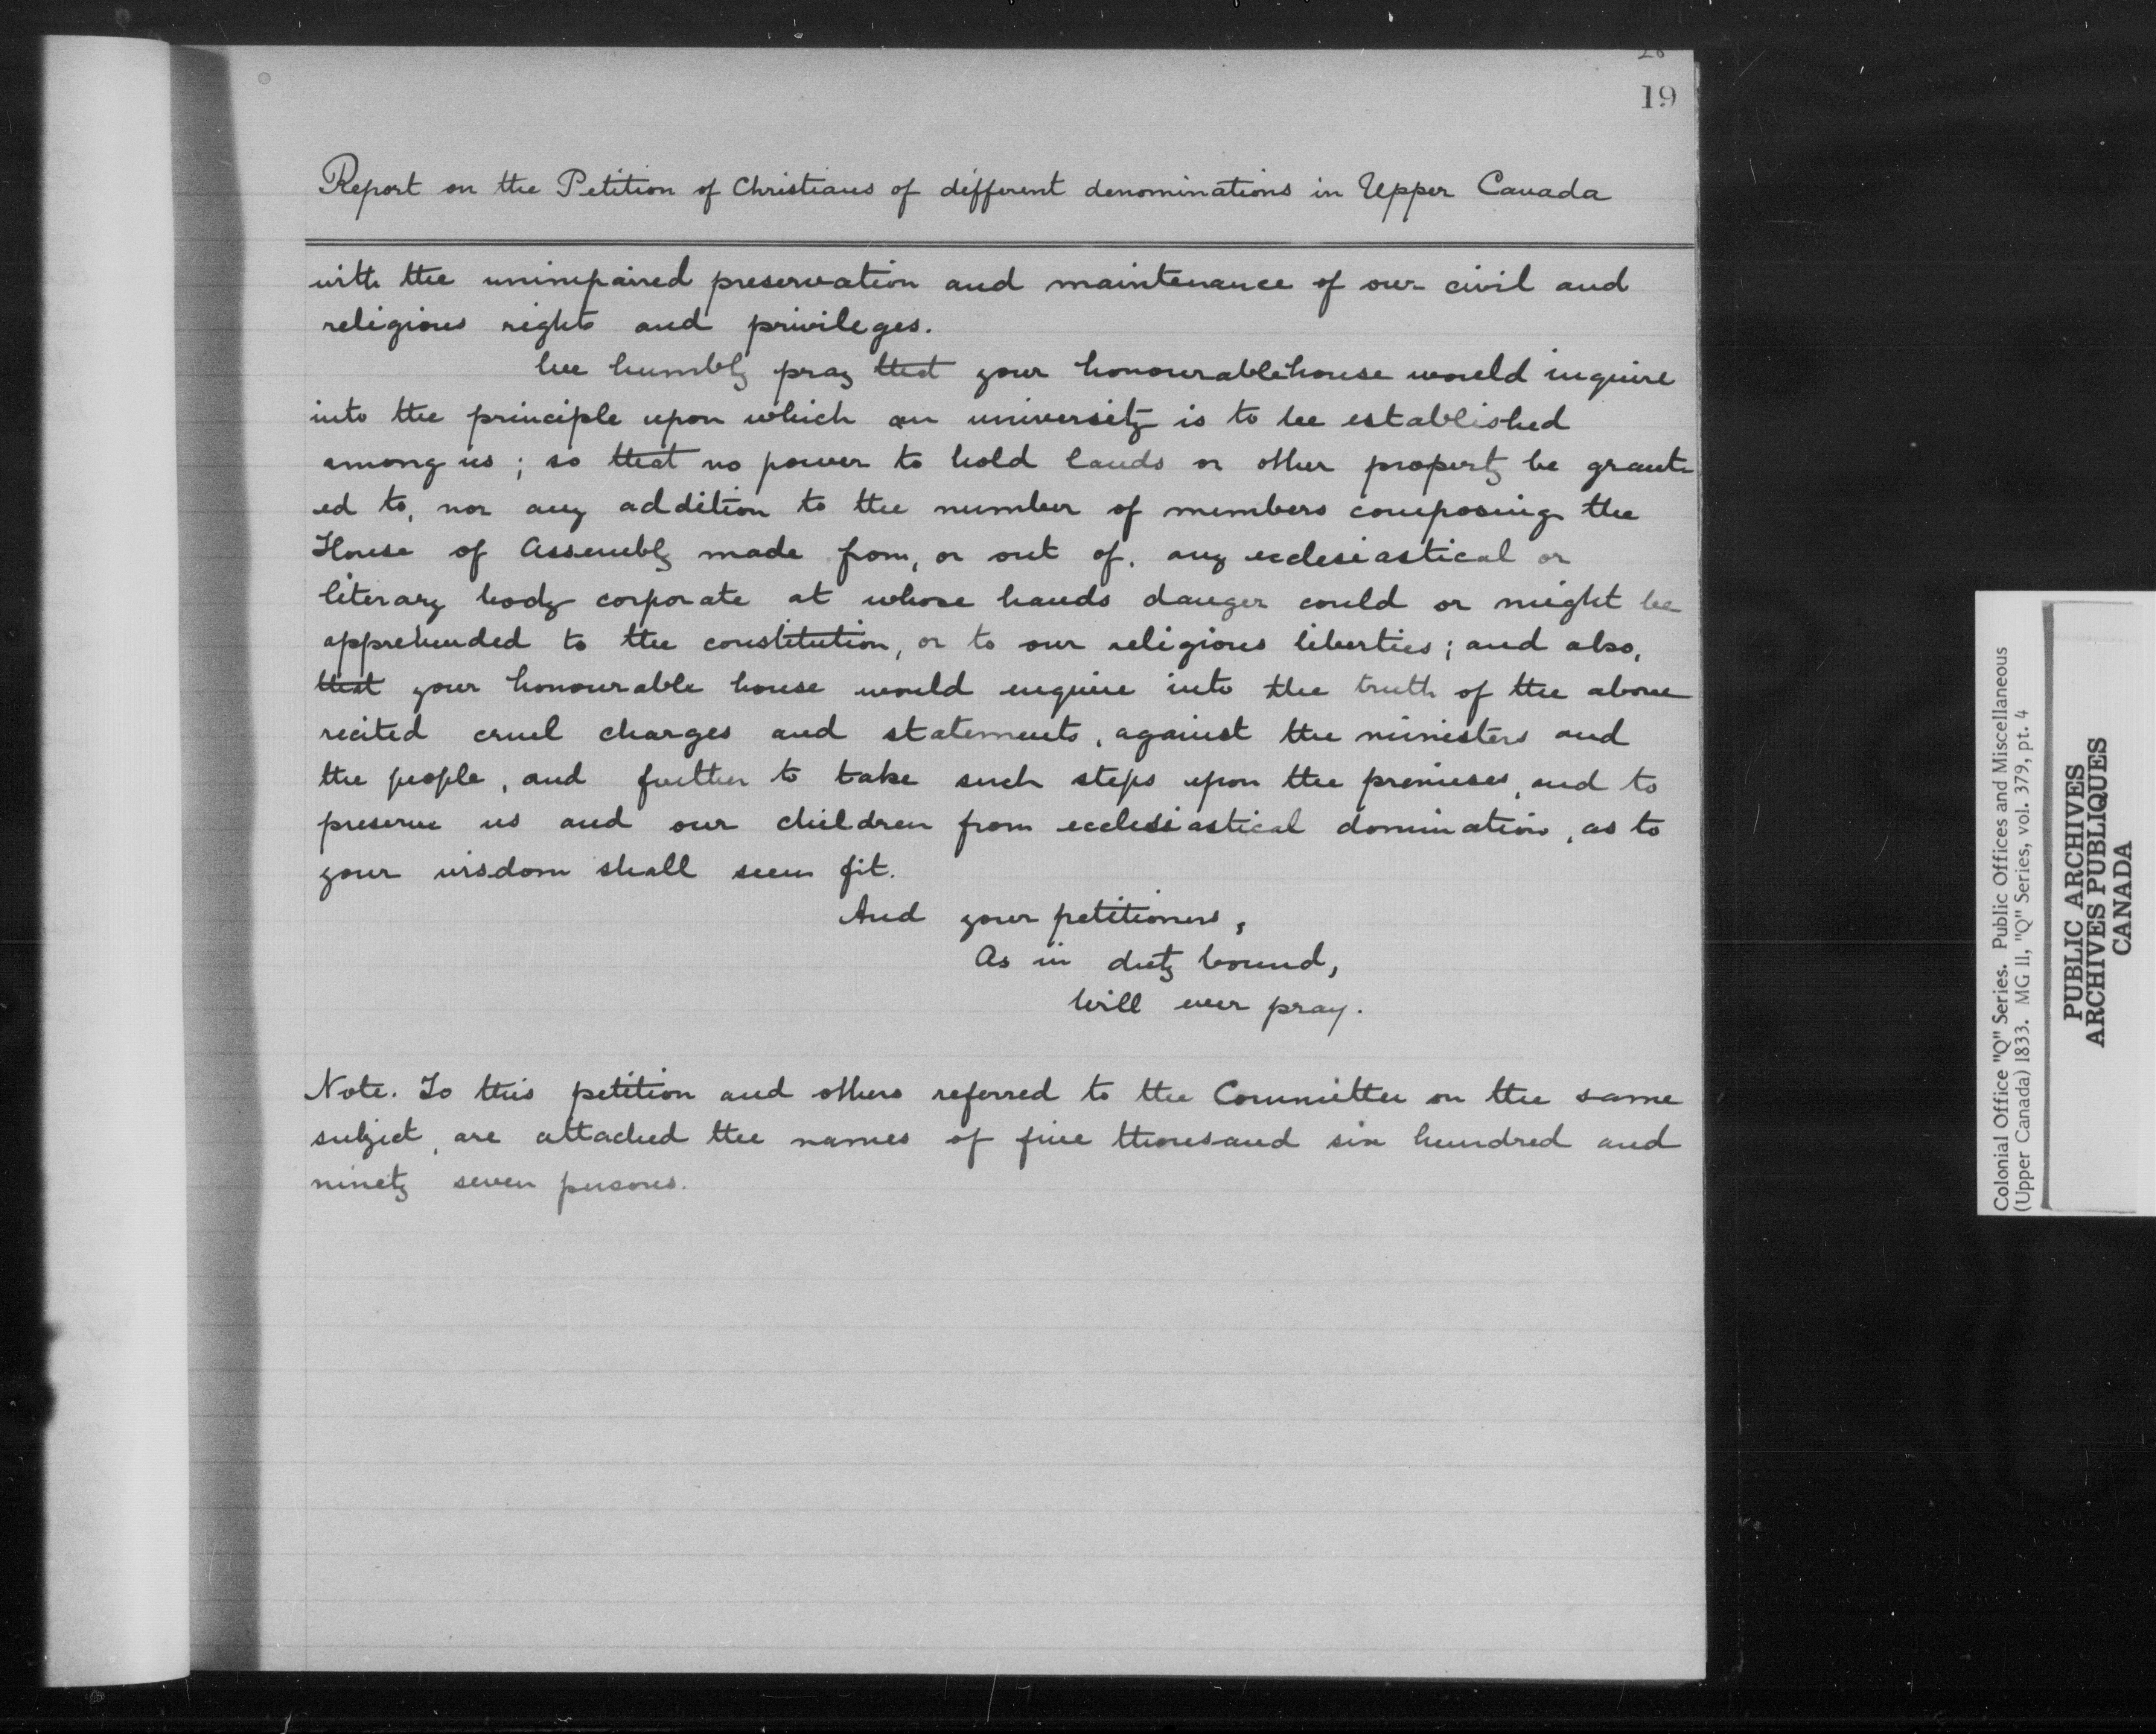 19
Report on the Petition of Christians of different denominations in Upper Canada
with the unimpaired preservation and maintenance of our civil and
religious rights and privileges.
We humbly pray that your honourable house would inquire
into the principle upon which an university is to be established
among us; so that no power to hold lands or other property be grant-
ed to, nor any addition to the number of members composing the
House of Assembly made from, or out of, any ecclesiastical or
literary body corporate at whose hands danger could or might be
apprehended to the constitution, or to our religious liberties; and also,
that your honourable house would enquire into the truth of the above
recited cruel charges and statements, against the ministers and
the people, and further to take such steps upon the premises, and to
preserve us and our children from ecclesiastical domination, as to
your wisdom shall seem fit.
And your petitioners,
As in duty bound,
Will ever pray.
Note. To this petition and others referred to the Committee on the same
subject, are attached the names of five thousand six hundred and
ninety seven persons.
Colonial Office "Q" Series. Public Offices and Miscellaneous
(Upper Canada) 1833. MG 11, "Q" Series, vol. 379, pt. 4
PUBLIC ARCHIVES
ARCHIVES PUBLIQUES
CANADA